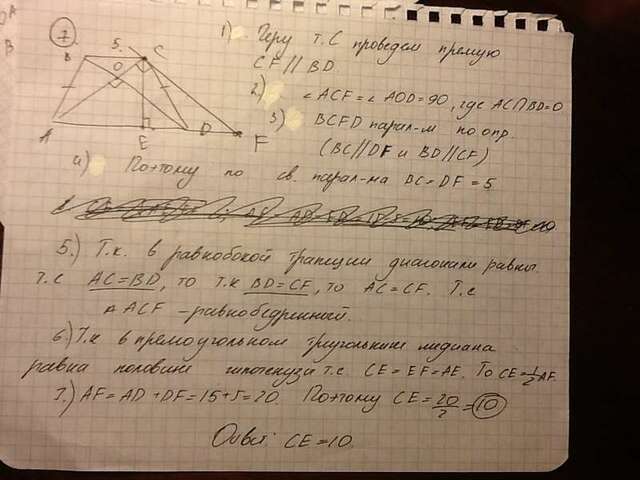 7
5
B
C
O
A
E
D
F
1) Через т. C проведем прямую
CF // BD.
2) ∠ACF = ∠AOD = 90, где AC∩BD=O
3) BCFD парал-м по опр.
(BC//DF и BD//CF)
4) Поэтому по св. парал-ма BC = DF = 5
5.) Т.к. в равнобокой трапеции диагонали равны
т.е AC=BD, то т.к BD=CF, то AC=CF. Т.е
△ ACF - равнобедренный.
6.) Т.к в прямоугольном треугольнике медиана
равна половине гипотенузы т.е. CE = EF = AE. То CE = 1/2 AF.
7.) AF = AD + DF = 15+5 = 20. Поэтому CE = 20/2 = 10
Ответ: CE = 10